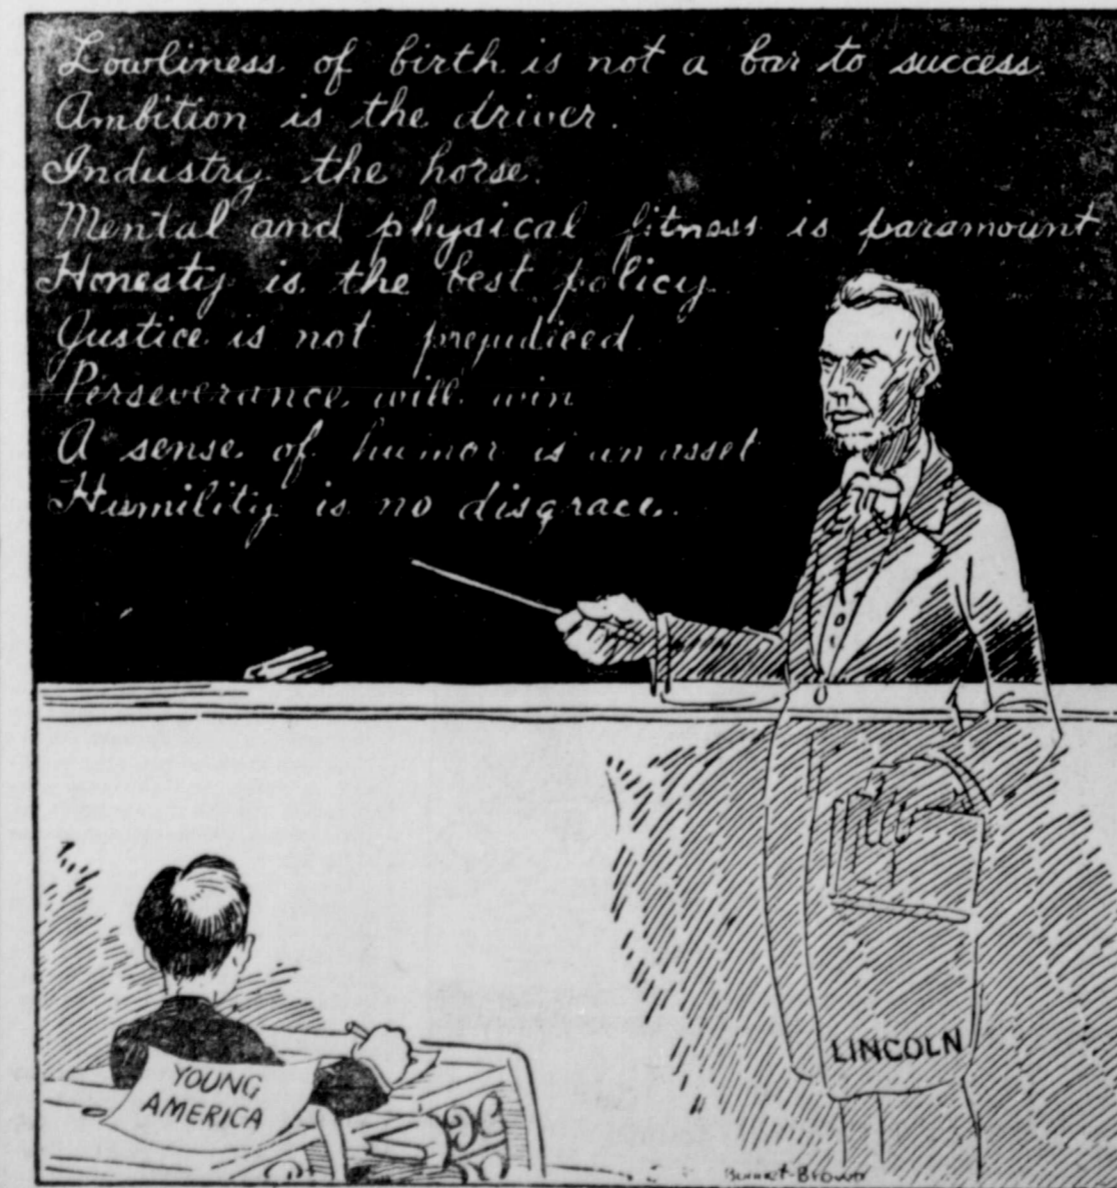 Lowliness of birth is not a bar to success.
Ambition is the driver.
Industry the horse.
Mental and physical fitness is paramount.
Honesty is the best policy.
Justice is not prejudiced.
Perseverance will win
A sense of humor is an asset
Humility is no disgrace.
LINCOLN
YOUNG
AMERICA
Brown